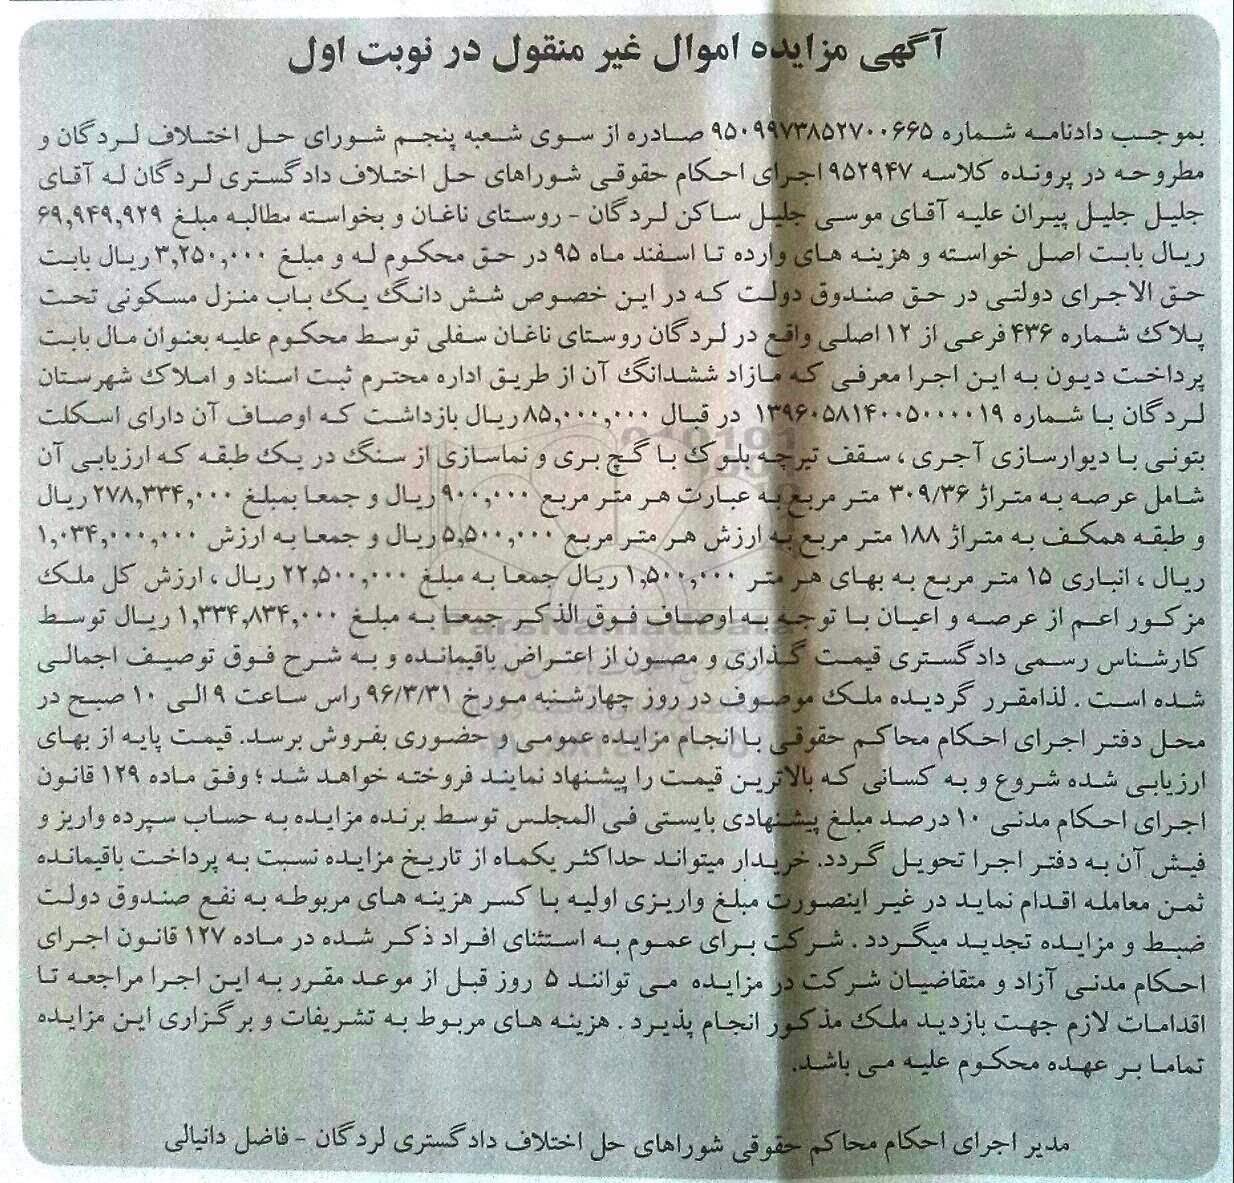 آگهی مزایده اموال غیر منقول در نوبت اول
بموجب دادنامه شماره ۹۵۰۹۹۷۳۸۵۲۷۰۰۶۶۵ صادره از سوی شعبه پنجم شورای حل اختلاف لردگان و
مطروحه در پرونده کلاسه ۹۵۲۹۴۷ اجرای احکام حقوقی شوراهای حل اختلاف دادگستری لردگان له آقای
جلیل جلیل پیران علیه آقای موسی جلیل ساکن لردگان - روستای ناغان و بخواسته مطالبه مبلغ ۶۹,۹۴۹,۹۲۹
ریال بابت اصل خواسته و هزینه های وارده تا اسفند ماه ۹۵ در حق محکوم له و مبلغ ۳,۲۵۰,۰۰۰ ریال بابت
حق الاجرای دولتی در حق صندوق دولت که در این خصوص شش دانگ یک باب منزل مسکونی تحت
پلاک شماره ۴۳۶ فرعی از ۱۲ اصلی واقع در لردگان روستای ناغان سفلی توسط محکوم علیه بعنوان مال بابت
پرداخت دیون به این اجرا معرفی که مازاد ششدانگ آن از طریق اداره محترم ثبت اسناد و املاک شهرستان
لردگان با شماره ۱۳۹۶۰۵۸۱۴۰۰۵۰۰۰۰۱۹ در قبال ۸۵,۰۰۰,۰۰۰ ریال بازداشت که اوصاف آن دارای اسکلت
بتونی با دیوارسازی آجری ، سقف تیرچه بلوک با گچ بری و نماسازی از سنگ در یک طبقه که ارزیابی آن
شامل عرصه به متراژ ۳۰۹/۳۶ متر مربع به عبارت هر متر مربع ۹۰۰,۰۰۰ ریال و جمعا بمبلغ ۲۷۸,۳۳۴,۰۰۰ ریال
و طبقه همکف به متراژ ۱۸۸ متر مربع به ارزش هر متر مربع ۵,۵۰۰,۰۰۰ ریال و جمعا به ارزش ۱,۰۳۴,۰۰۰,۰۰۰
ریال ، انباری ۱۵ متر مربع به بهای هر متر ۱,۵۰۰,۰۰۰ ریال جمعا به مبلغ ۲۲,۵۰۰,۰۰۰ ریال ، ارزش کل ملک
مزکور اعم از عرصه و اعیان با توجه به اوصاف فوق الذکر جمعا به مبلغ ۱,۳۳۴,۸۳۴,۰۰۰ ریال توسط
کارشناس رسمی دادگستری قیمت گذاری و مصون از اعتراض باقیمانده و به شرح فوق توصیف اجمالی
شده است . لذامقرر گردیده ملک موصوف در روز چهارشنبه مورخ ۹۶/۳/۳۱ راس ساعت ۹ الی ۱۰ صبح در
محل دفتر اجرای احکام محاکم حقوقی با انجام مزایده عمومی و حضوری بفروش برسد. قیمت پایه از بهای
ارزیابی شده شروع و به کسانی که بالاترین قیمت را پیشنهاد نمایند فروخته خواهد شد ؛ وفق ماده ۱۲۹ قانون
اجرای احکام مدنی ۱۰ درصد مبلغ پیشنهادی بایستی فی المجلس توسط برنده مزایده به حساب سپرده واریز و
فیش آن به دفتر اجرا تحویل گردد. خریدار میتواند حداکثر یکماه از تاریخ مزایده نسبت به پرداخت باقیمانده
ثمن معامله اقدام نماید در غیر اینصورت مبلغ واریزی اولیه با کسر هزینه های مربوطه به نفع صندوق دولت
ضبط و مزایده تجدید میگردد . شرکت برای عموم به استثنای افراد ذکر شده در ماده ۱۲۷ قانون اجرای
احکام مدنی آزاد و متقاضیان شرکت در مزایده می توانند ۵ روز قبل از موعد مقرر به این اجرا مراجعه تا
اقدامات لازم جهت بازدید ملک مذکور انجام پذیرد . هزینه های مربوط به تشریفات و برگزاری این مزایده
تماما بر عهده محکوم علیه می باشد.
مدیر اجرای احکام محاکم حقوقی شوراهای حل اختلاف دادگستری لردگان - فاضل دانیالی